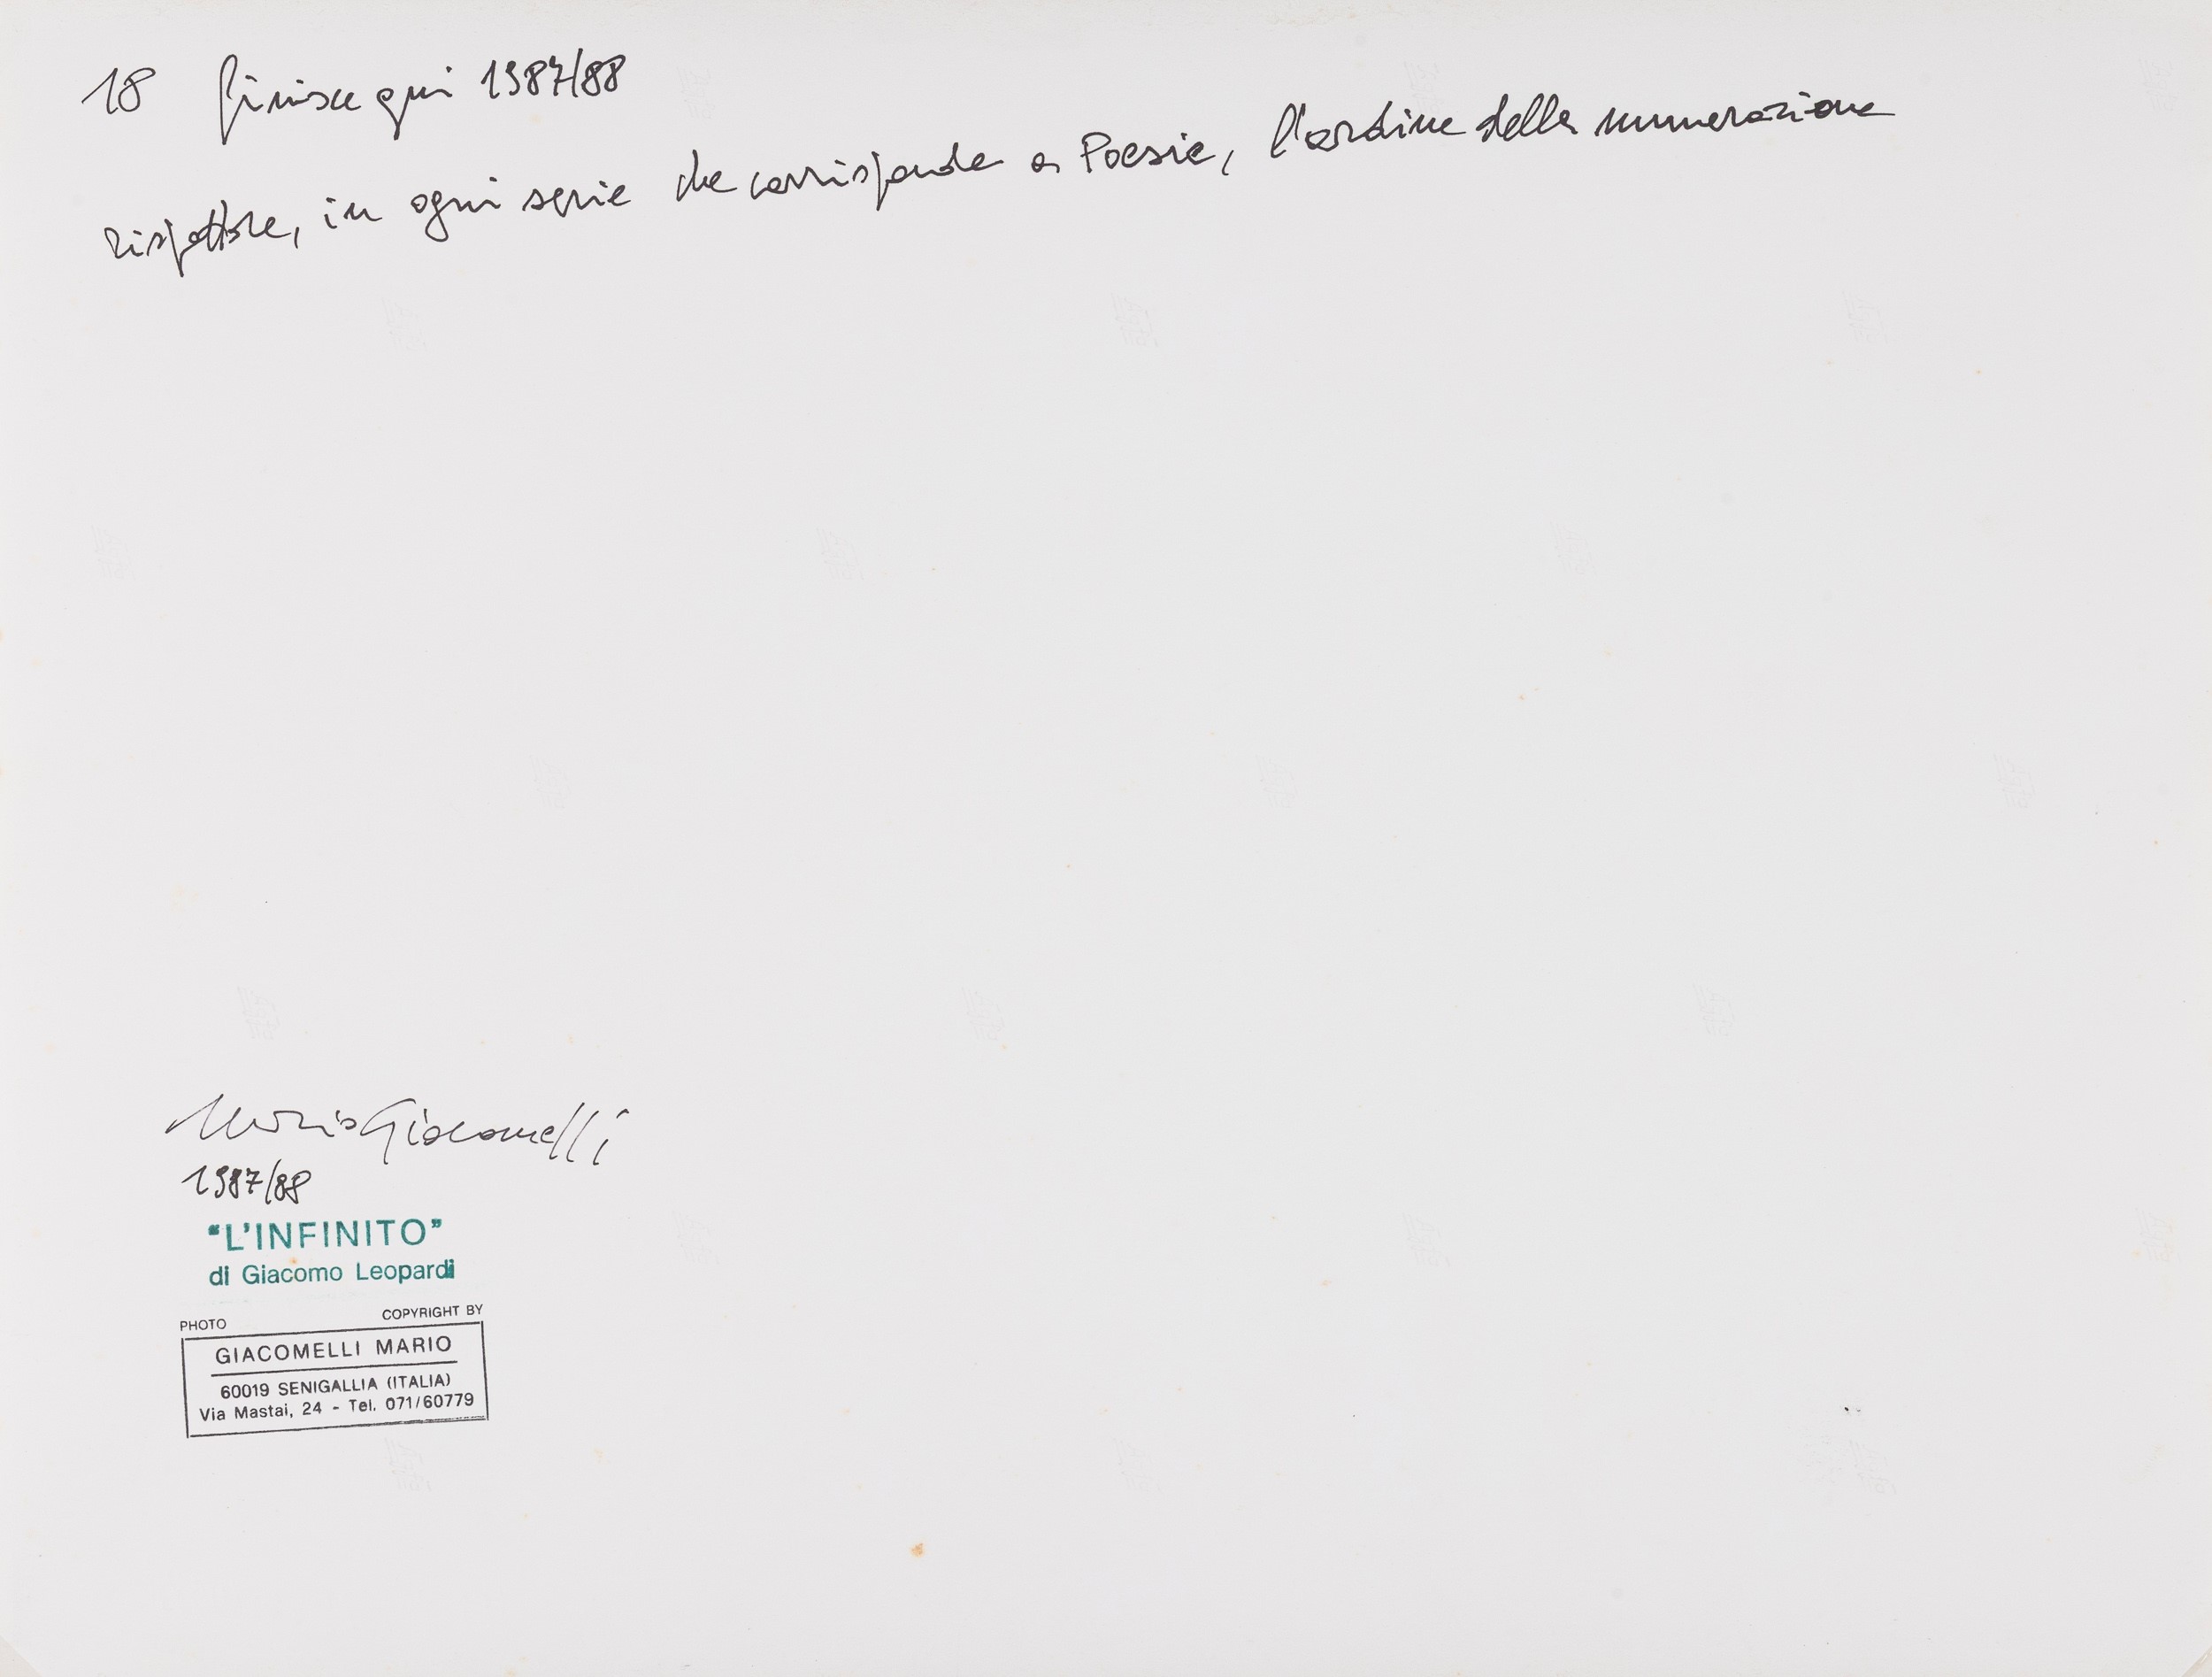 18 finisce qui 1987/88
rispettare, in ogni serie che corrisponde a Poesie, l'ordine della numerazione
Mario Giacomelli
1987/88
"L'INFINITO"
di Giacomo Leopardi
PHOTO COPYRIGHT BY
GIACOMELLI MARIO
60019 SENIGALLIA (ITALIA)
Via Mastai, 24 - Tel. 071/60779